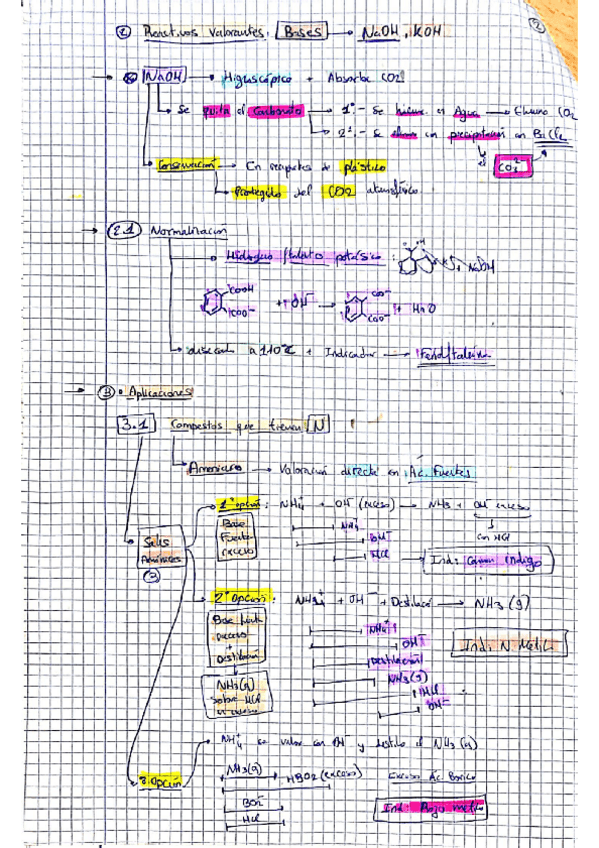 ② Reactivos Valorantes. Bases → NaOH, KOH
②
NaOH → Higroscópico + Absorbe CO2
Se quita el Carbonato → 1º.- Se hierve el Agua → Elimino CO2
2º.- Se elimina con precipitación con BaCl2
el CO3 2-
Conservación → En recipientes de plástico
Protegido del CO2 atmosférico
2.1 Normalización
Hidrógeno ftalato potásico : + NaOH
COOH COO- + OH- → COO- COO- + H2O
a 110ºC + Indicador → Fenolftaleína
③ • Aplicaciones
3.1 Compuestos que tienen N
Amoniaco → Valoración directa con Ác. Fuertes
1ª opción: NH4+ + OH- (exceso) → NH3 + OH- exceso
con HCl
Base Fuerte exceso
NH4+
OH-
HCl
Ind: Carmín índigo
Sales Amónicas
2ª Opción: NH4+ + OH- + Destilació → NH3 (g)
Base fuerte exceso + Destilación
NH4+
OH-
Destilación
NH3(g)
HCl
OH-
NH3(g) sobre HCl
Ind: N. Metilo
NH4+ se valora con OH- y destilo el NH3 (g)
3 Opción
NH3(g) HBO2 (exceso) Exceso Ác. Bórico
BO2-
HCl
Ind: Rojo metilo